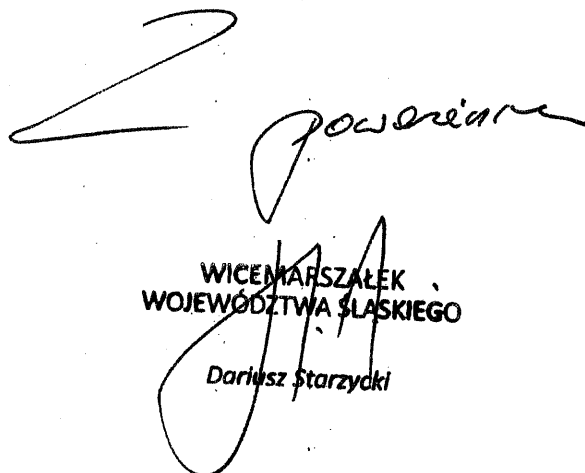 Z poważaniem
WICEMARSZAŁEK
WOJEWÓDZTWA ŚLĄSKIEGO
Dariusz Starzycki